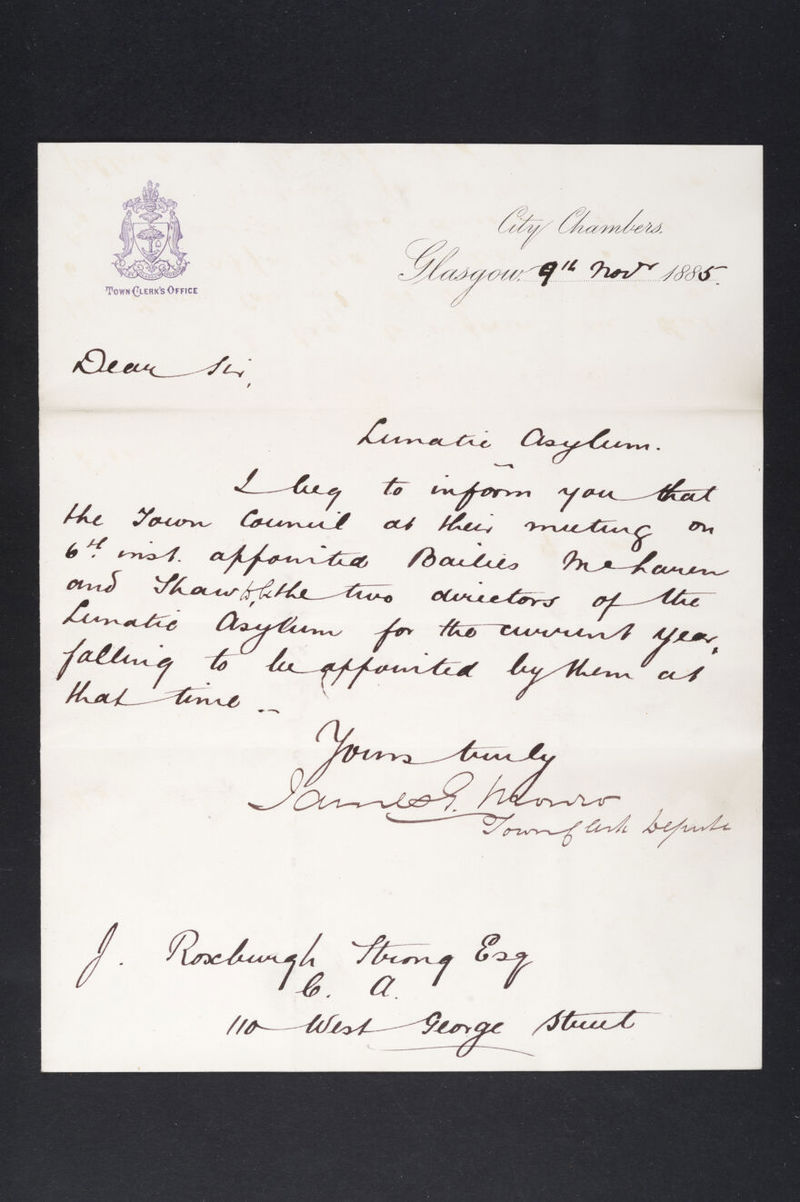 City Chambers.
Glasgow. 9th Novr 1885.
TOWN CLERK'S OFFICE
Dear Sir,
Lunatic Asylum.
I beg to inform you that
the Town Council at their meeting on
6th inst. appointed Bailies McLaren
and Shaw to be the two directors of the
Lunatic Asylum for the current year,
falling to be appointed by them at
that time
Yours truly
James G. Monro
Town Clerk Depute
J. Roxburgh Strong Esq
C. A.
110 West George Street